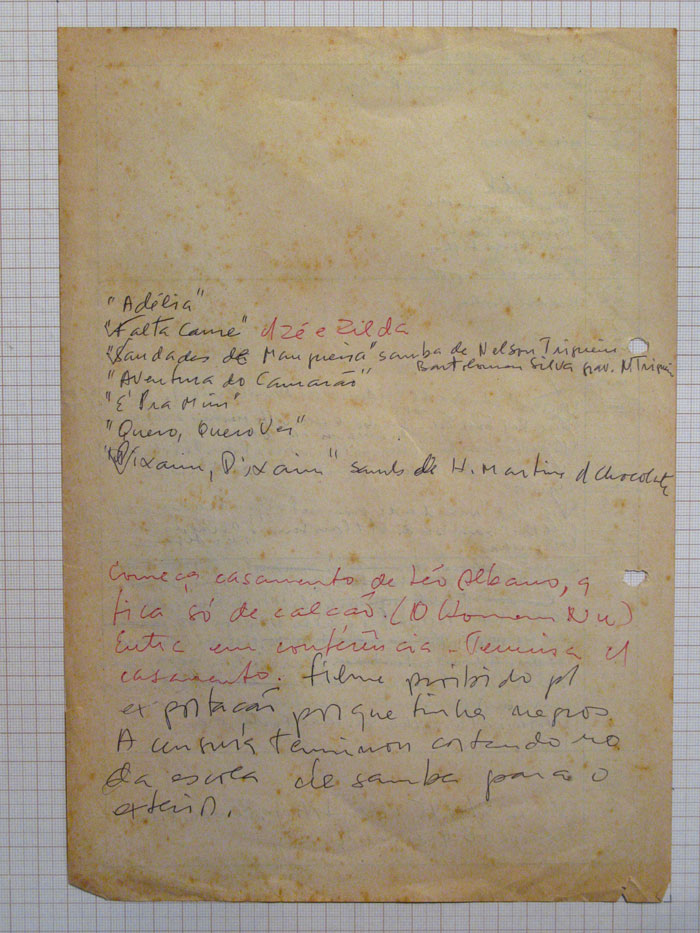 "Adélia"
"Falta Carne" d Zé e Zilda
"Saudades de Mangueira" samba de Nelson Trigueiro
Bartolomeu Silva grav. N Trigue
"Aventura do Camarão"
"É Pra Mim"
"Quero, Quero Ver"
"Pixaim, Pixaim" samb de H. Martins d Chocolate
Começa casamento de Léo Albano, q
fica só de calção. (O Homem Nu)
Entra em conferência - Termina c/
casamento. filme proibido p/
exportação porque tinha negros
A censura terminou cortando no
da escola de samba para o
exterior.